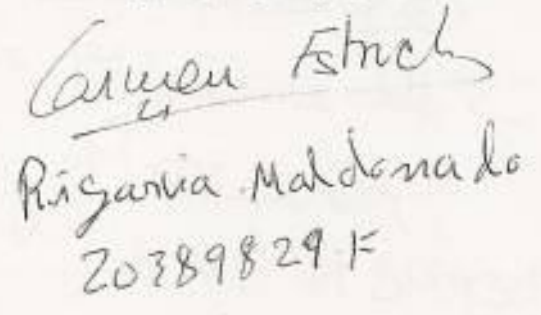 Carmen Estruch
Rigarvia Maldonado
20389829 F